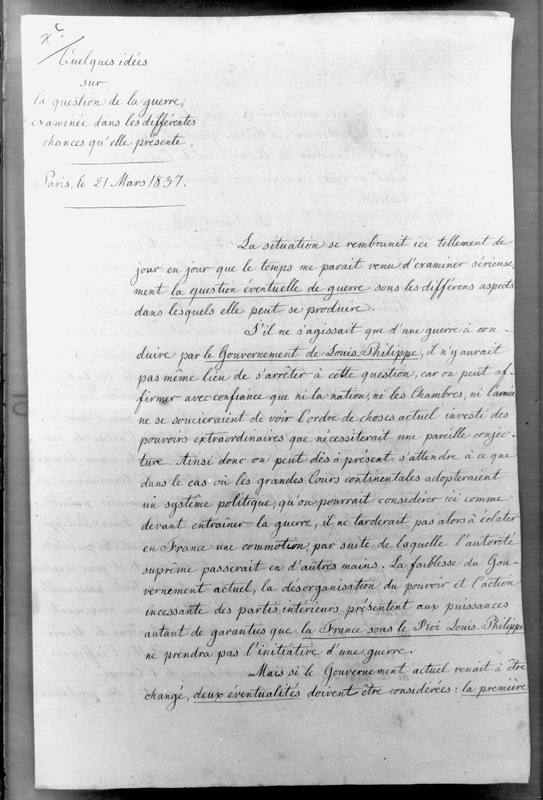 Xc
Quelques idées
sur
la question de la guerre,
examinée dans les différentes
chances qu'elle présente.
Paris, le 21 Mars 1837.
La situation se rembrunit ici tellement de
jour en jour que le temps me parait venu d'examiner sérieuse-
ment la question éventuelle de guerre sous les différens aspects
dans lesquels elle peut se produire.
S'il ne s'agissait que d'une guerre à con-
duire par le Gouvernement de Louis Philippe, il n'y aurait
pas même lieu de s'arrêter à cette question, car on peut af-
firmer avec confiance que ni la nation, ni les Chambres, ni l'armée
ne se soucieraient de voir l'ordre de choses actuel investi des
pouvoirs extraordinaires que nécessiterait une pareille conjec-
ture. Ainsi donc on peut dès à présent s'attendre à ce que
dans le cas où les grandes Cours continentales adopteraient
un système politique, qu'on pourrait considérer ici comme
devant entrainer la guerre, il ne tarderait pas alors à éclater
en France une commotion, par suite de laquelle l'autorité
suprême passerait en d'autres mains. La faiblesse du Gou-
vernement actuel, la désorganisation du pouvoir et l'action
incessante des partis intérieurs présentent aux puissances
autant de garanties que la France sous le Roi Louis Philippe
ne prendra pas l'initiative d'une guerre.
Mais si le Gouvernement actuel venait à être
changé, deux éventualités doivent être considérées: la première